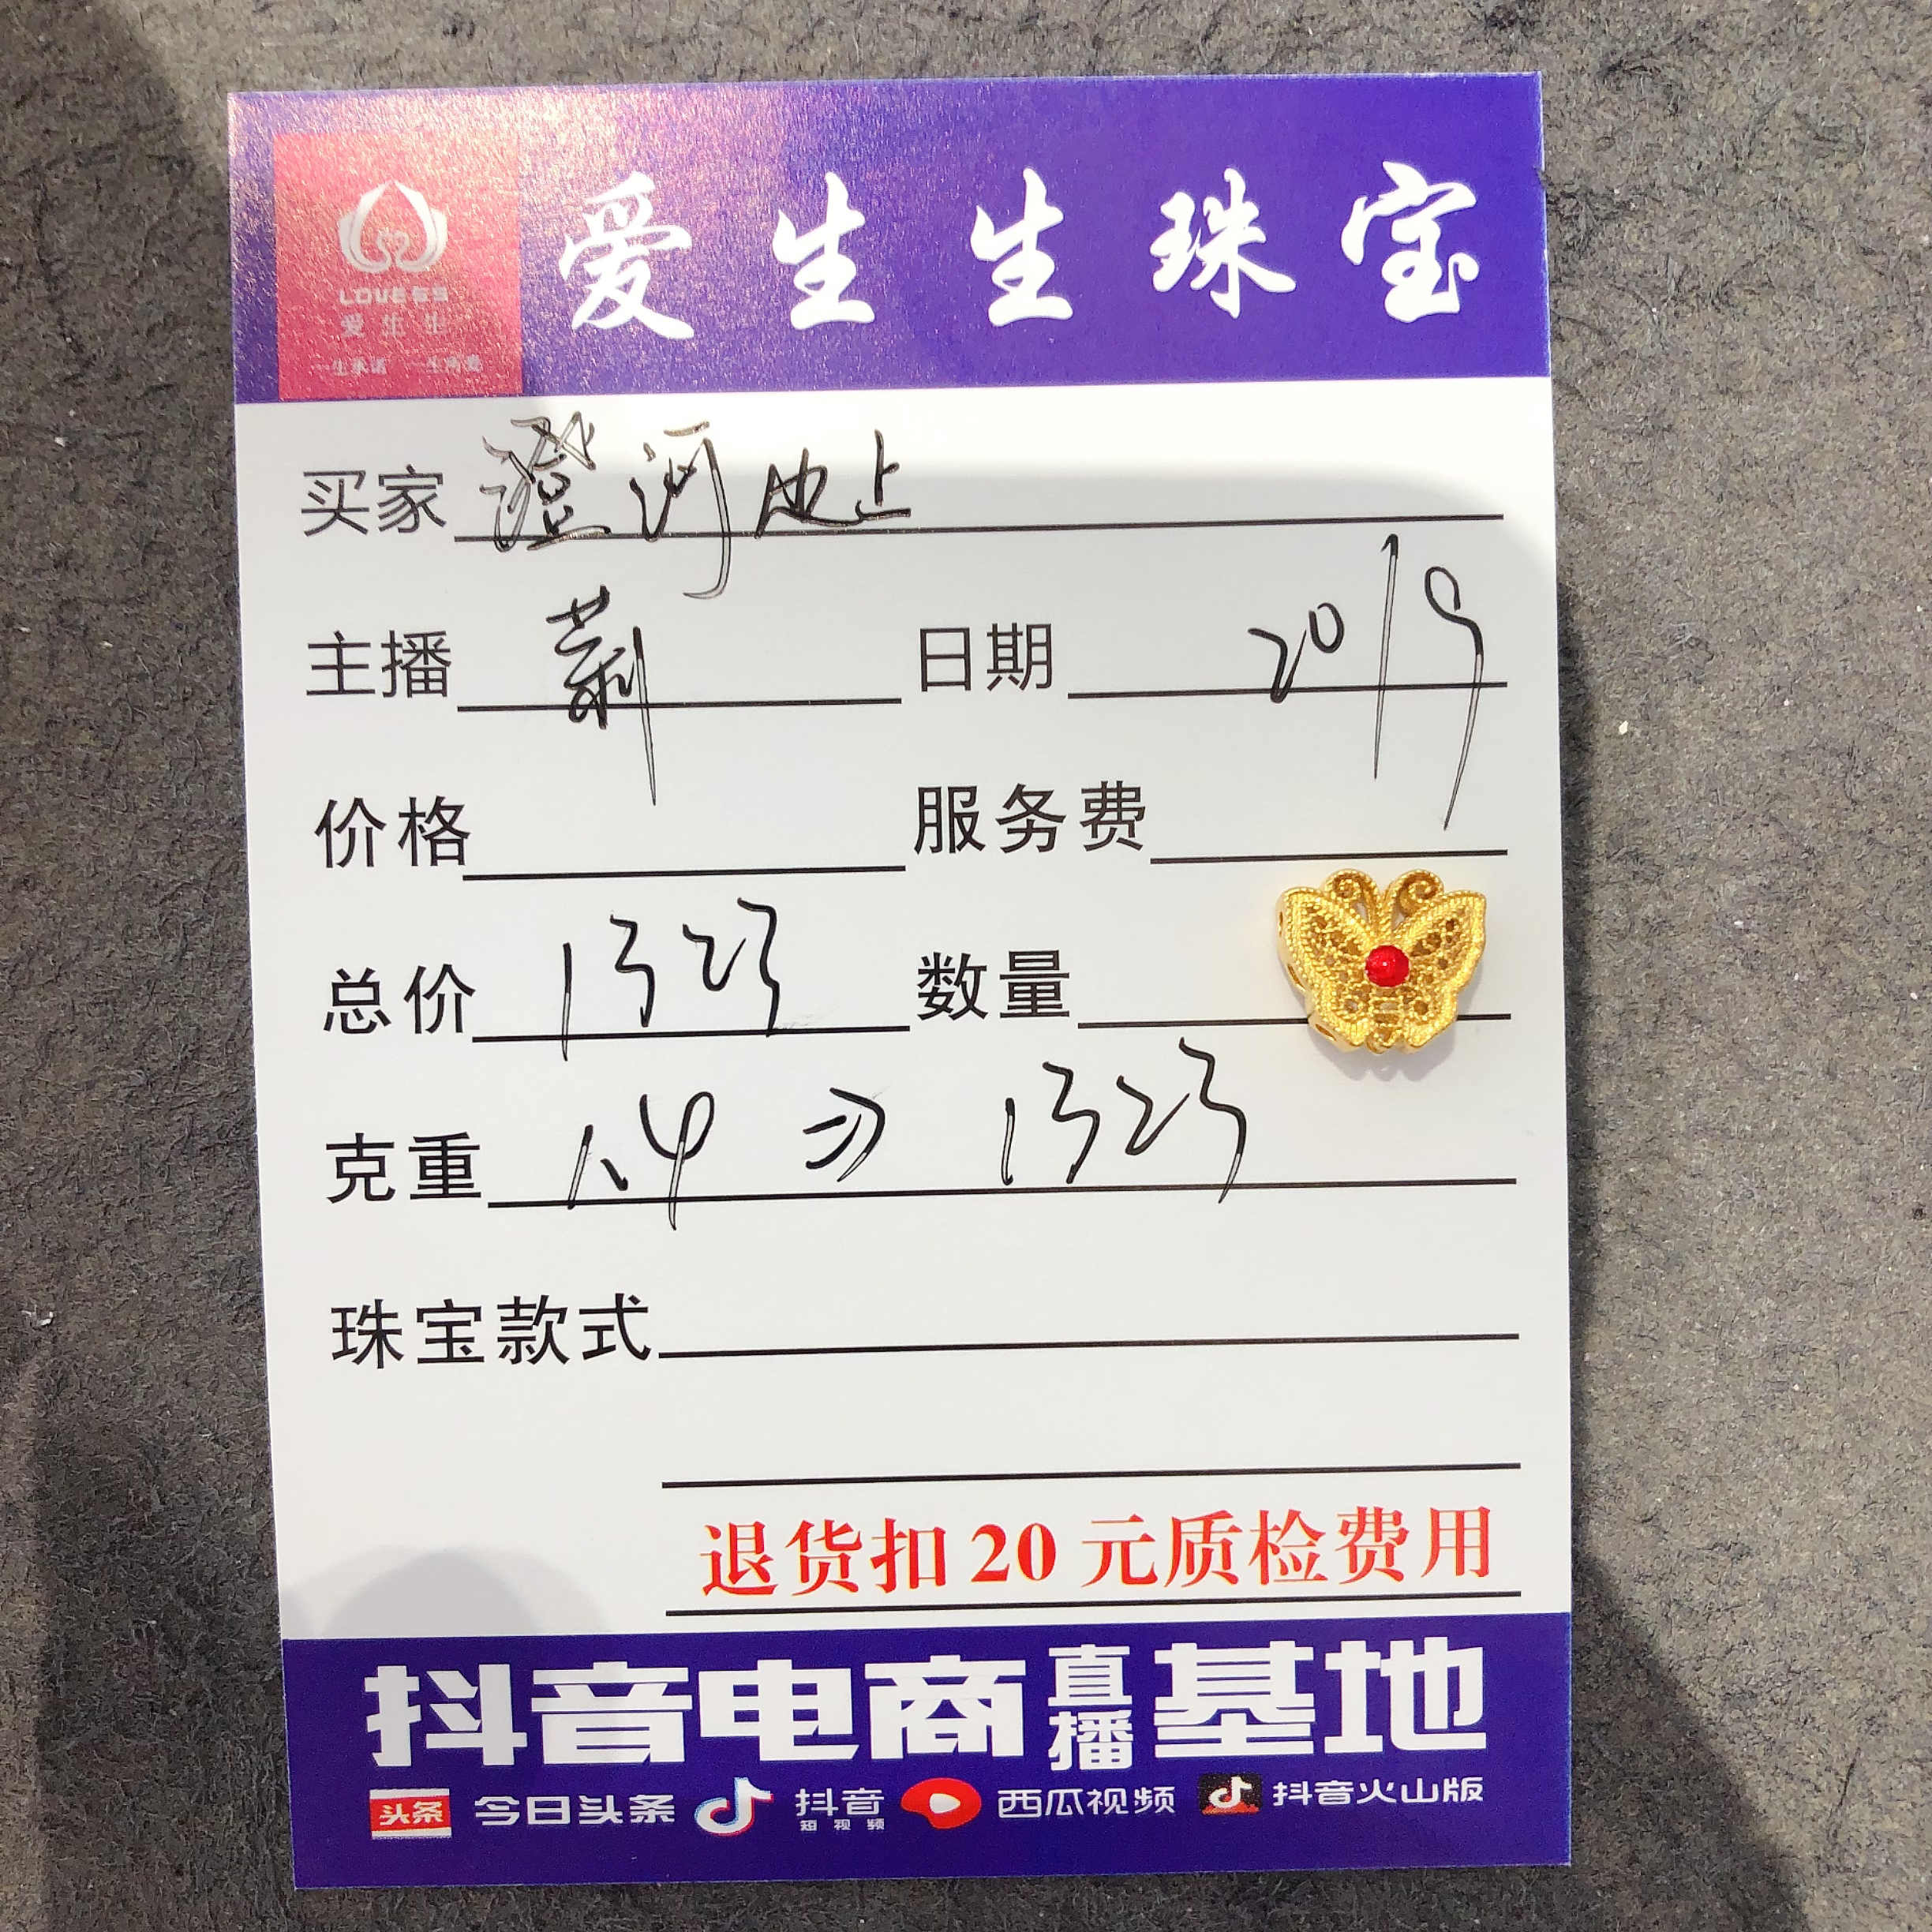 爱生生珠宝
LOVESS
爱生生
一生承诺 一生向爱
买家 澄河池上
主播 莉 日期 20/9
价格 服务费
总价 1323 数量
克重 1.4 1323
珠宝款式
退货扣20元质检费用
抖音电商直播基地
头条 今日头条 抖音短视频 西瓜视频 抖音火山版